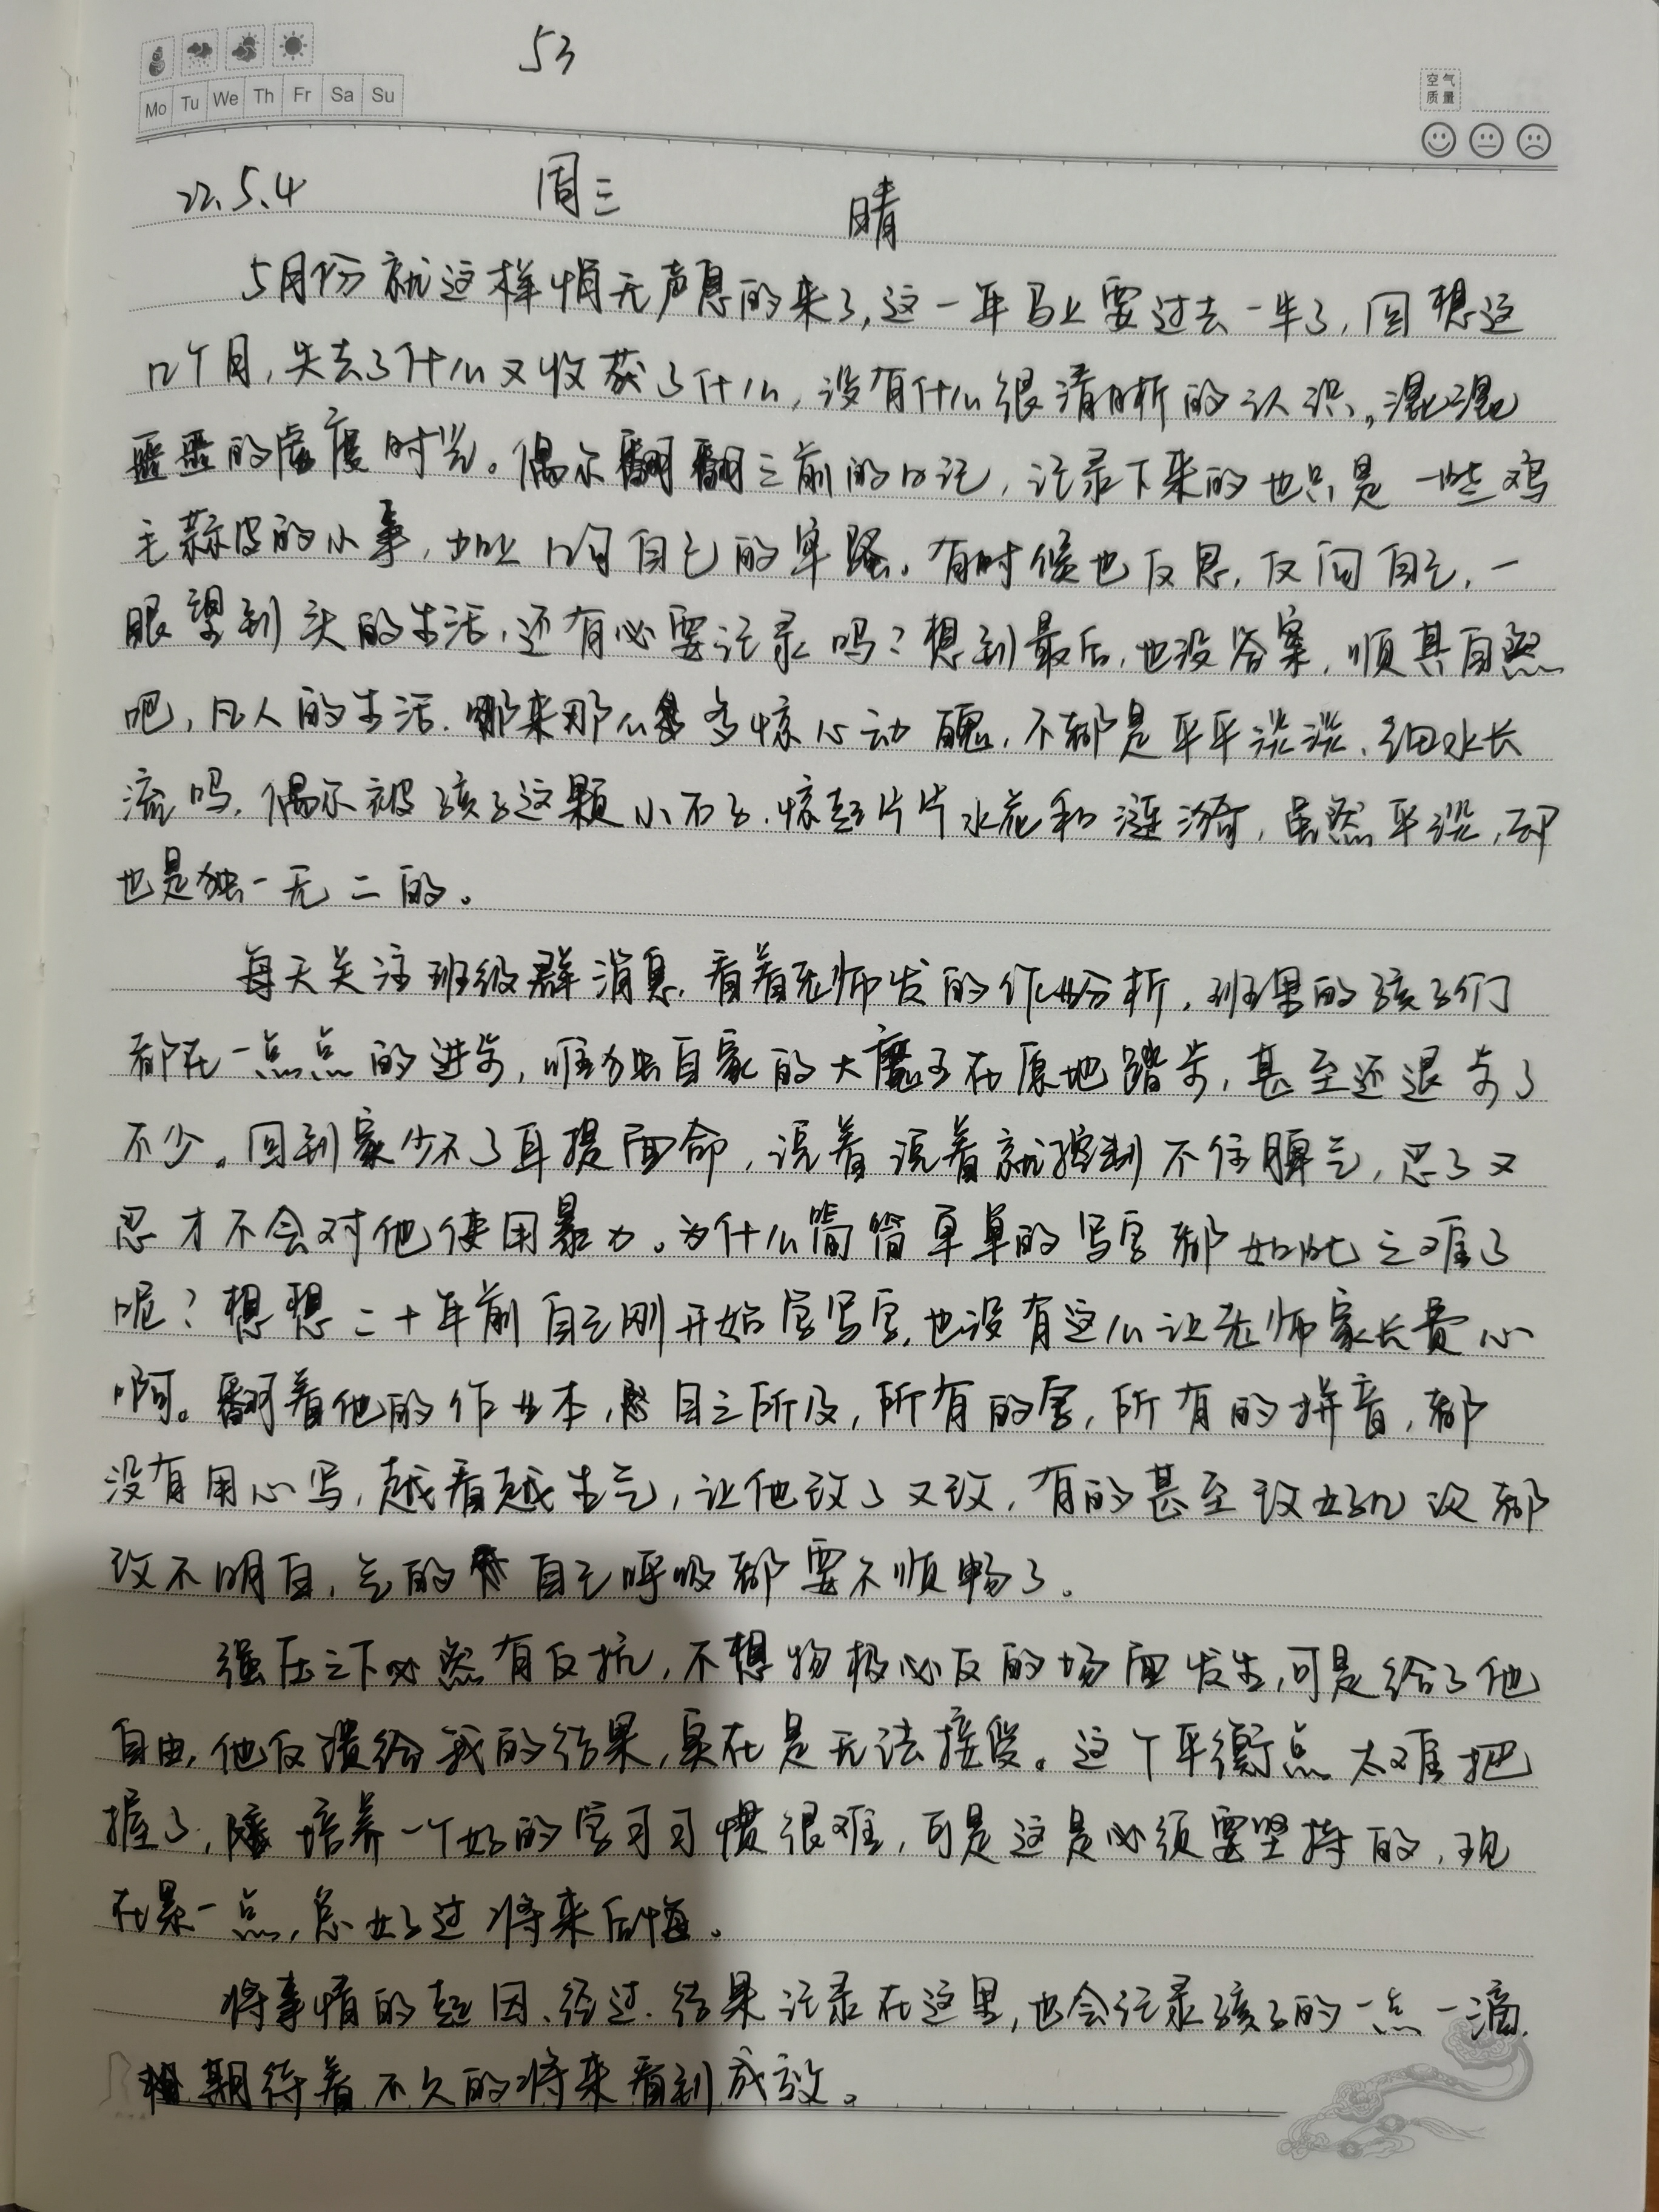 53
Mo Tu We Th Fr Sa Su
空气
质量
22.5.4 周三 晴
5月份就这样悄无声息的来了,这一年马上要过去一半了,回想这
几个月,失去了什么又收获了什么,没有什么很清晰的认识,混混
噩噩的虚度时光。偶尔翻翻之前的日记,记录下来的也只是一些鸡
毛蒜皮的小事,加上几句自己的牢骚。有时候也反思,反问自己,一
眼望到头的生活,还有必要记录吗?想到最后,也没答案,顺其自然
吧,凡人的生活.哪来那么多惊心动魄,不都是平平淡淡、细水长
流吗,偶尔被孩子这颗小石子,惊起片片水花和涟漪,虽然平淡,却
也是独一无二的。
每天关注班级群消息,看着老师发的作业分析,班里的孩子们
都在一点点的进步,唯独自家的大魔王在原地踏步,甚至还退步了
不少。回到家少不了耳提面命,说着说着就控制不住脾气,忍了又
忍才不会对他使用暴力。为什么简简单单的写字都如此之难了
呢?想想二十年前自己刚开始学写字,也没有这么让老师家长费心
啊。翻着他的作业本,目之所及,所有的字,所有的拼音,都
没有用心写,越看越生气,让他改了又改,有的甚至改好几次都
改不明白,气的自己呼吸都要不顺畅了。
强压之下必然有反抗,不想物极必反的场面发生,可是给了他
自由,他反馈给我的结果,实在是无法接受。这个平衡点太难把
握了,培养一个好的学习习惯很难,可是这是必须要坚持的,现
在累一点,总好过将来后悔。
将事情的起因、经过、结果记录在这里,也会记录孩子的一点一滴,
期待着不久的将来看到成效。